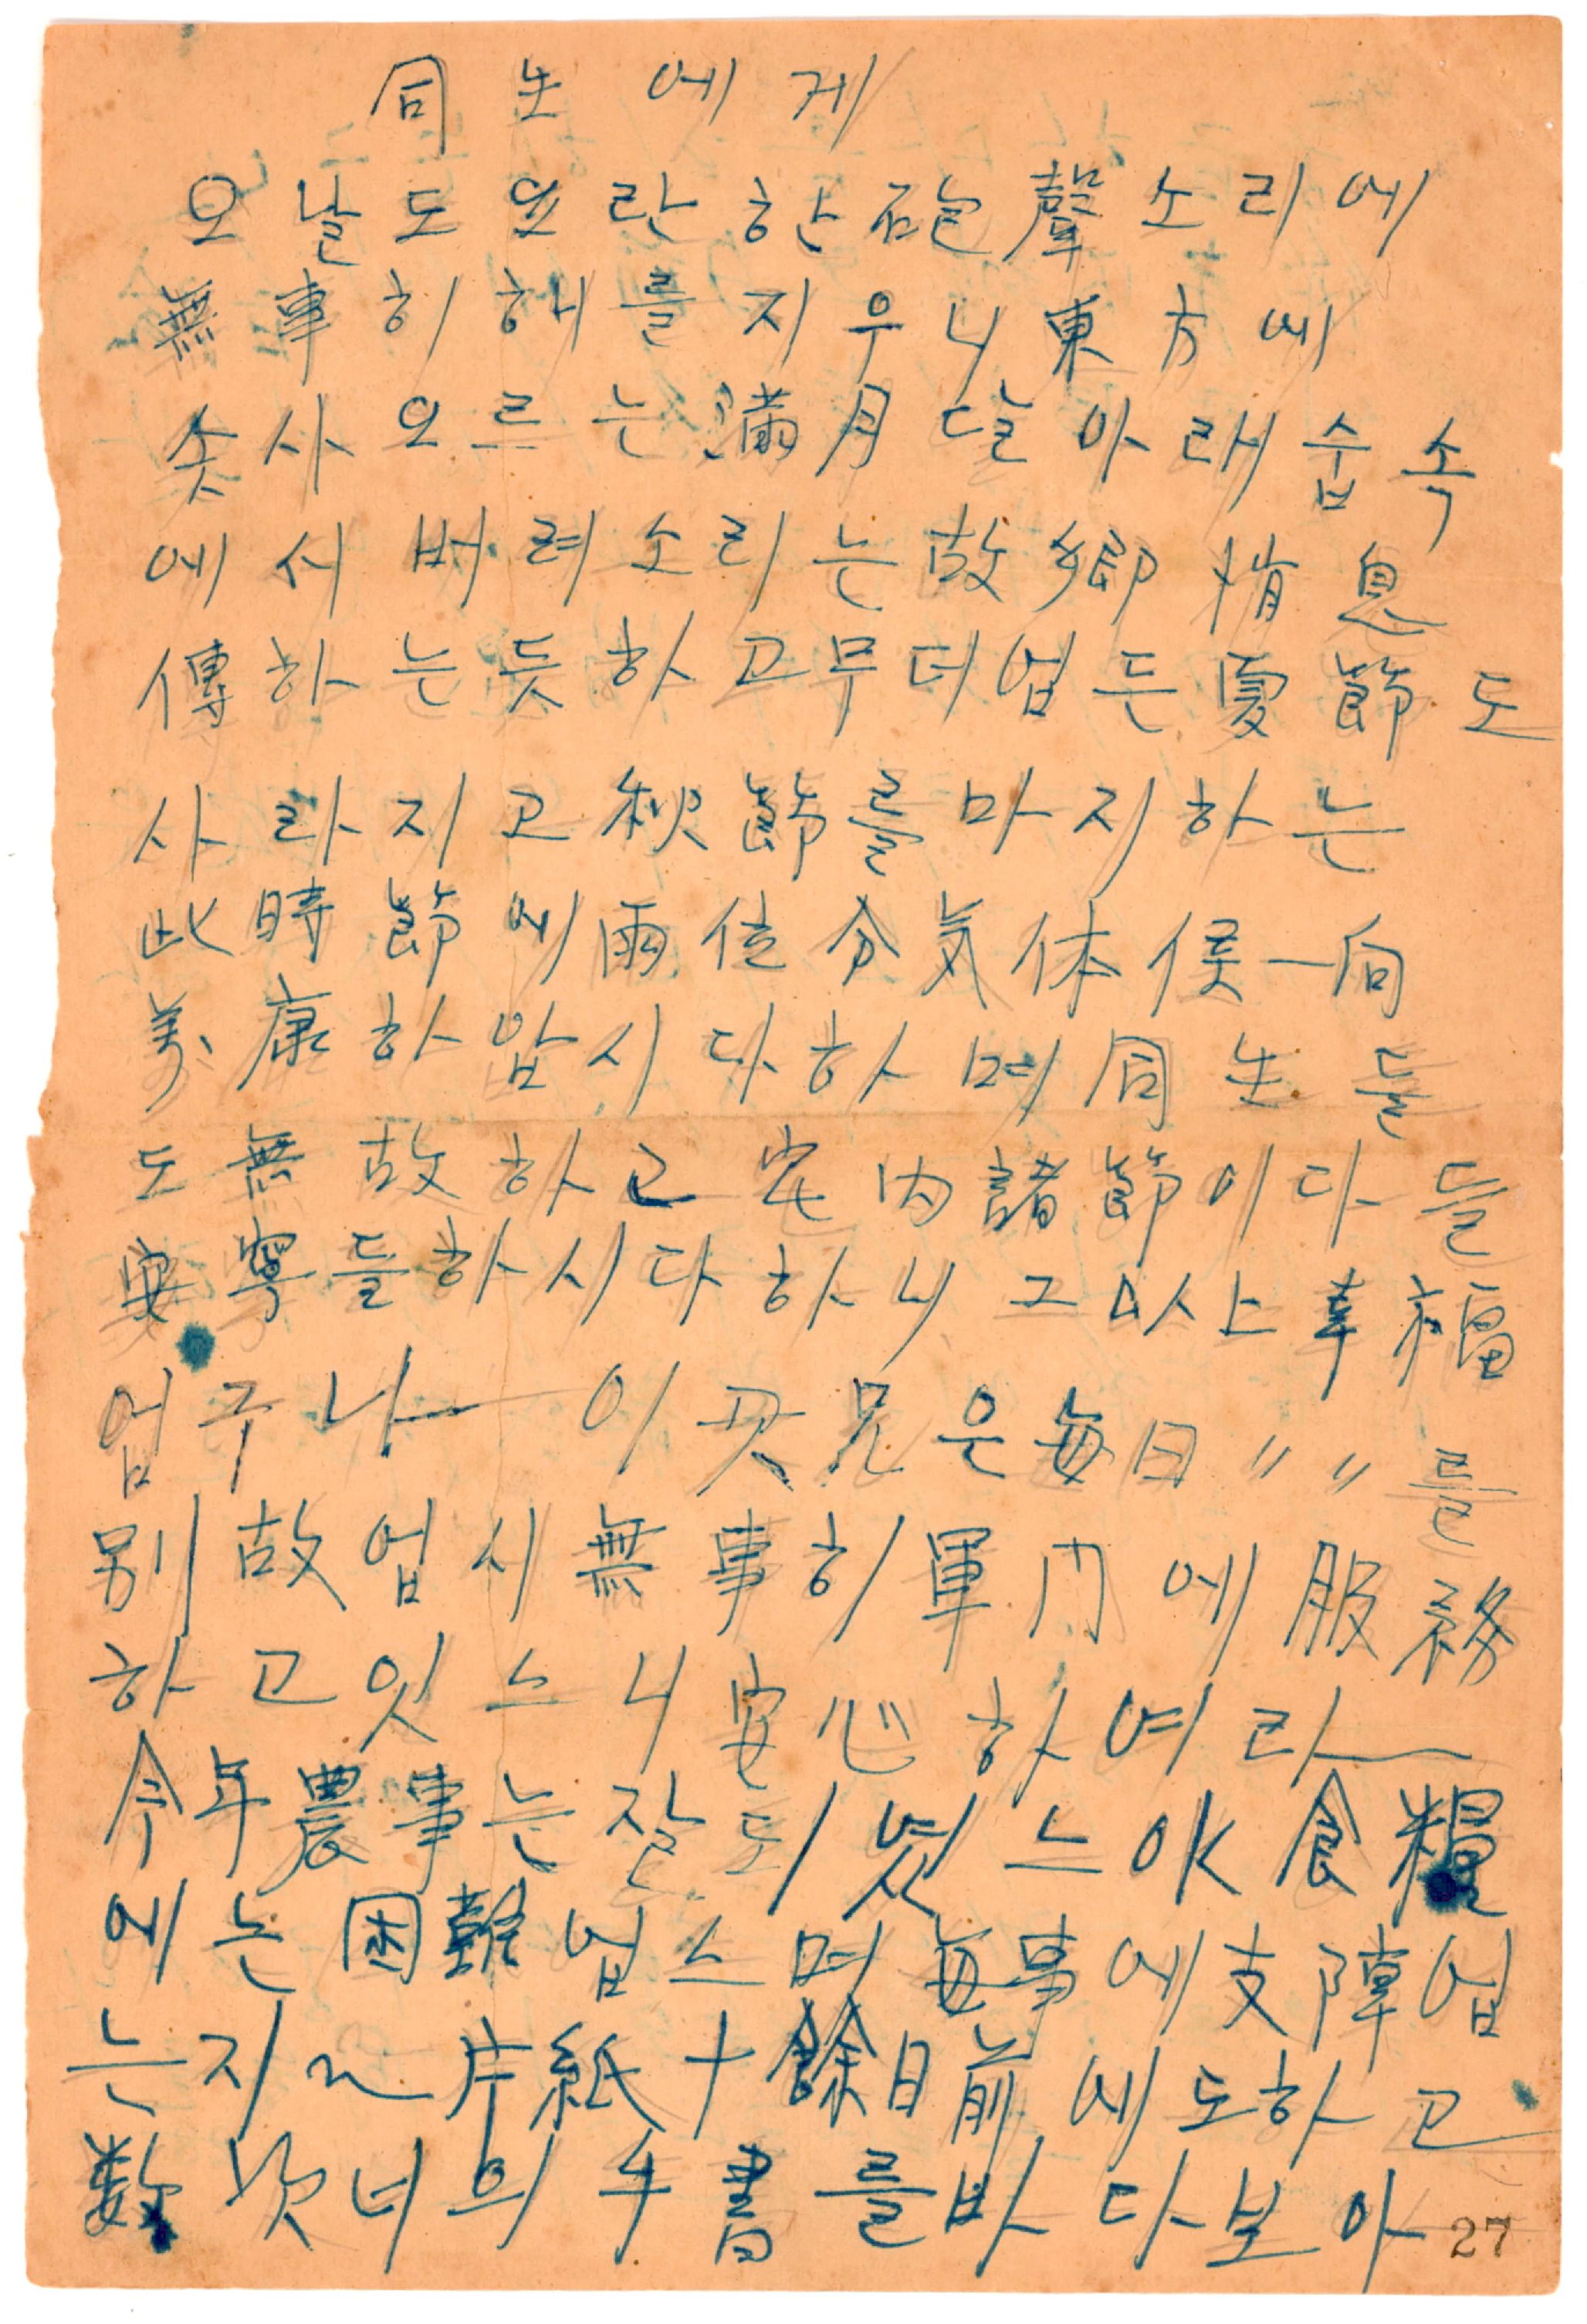 同生에게
오날도 요란한 砲聲소리에
無事히 해를 지우니 東方에
솟사오르는 滿月달아래 숩속
에서 버레소리는 故鄉 消息
傳하는듯하고 무더업든 夏節도
사라지고 秋節를 마지하는
此時節에 兩位分 気体侯一向
萬康하압시다하며 同生들
도 無故하고 宅內諸節이 다들
安寧들하시다하니 그 以上 幸福
업구나— 이 兄은 每日〃〃를
別故업시 無事히 軍门에 服務
하고잇스니 安心하여라—
今年農事는 잘되엿스며 食糧
에는 困難업스며 每事에 支障업
는지~ 片紙 十餘日前에도하고
数次 너의 手書를 바다보아
27